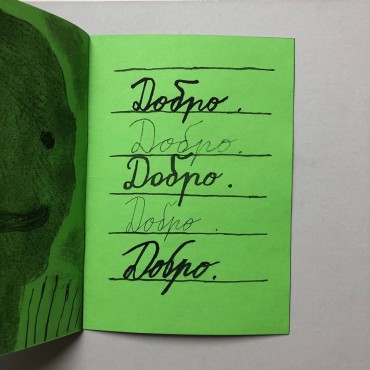 Добро.
Добро.
Добро.
Добро.
Добро.